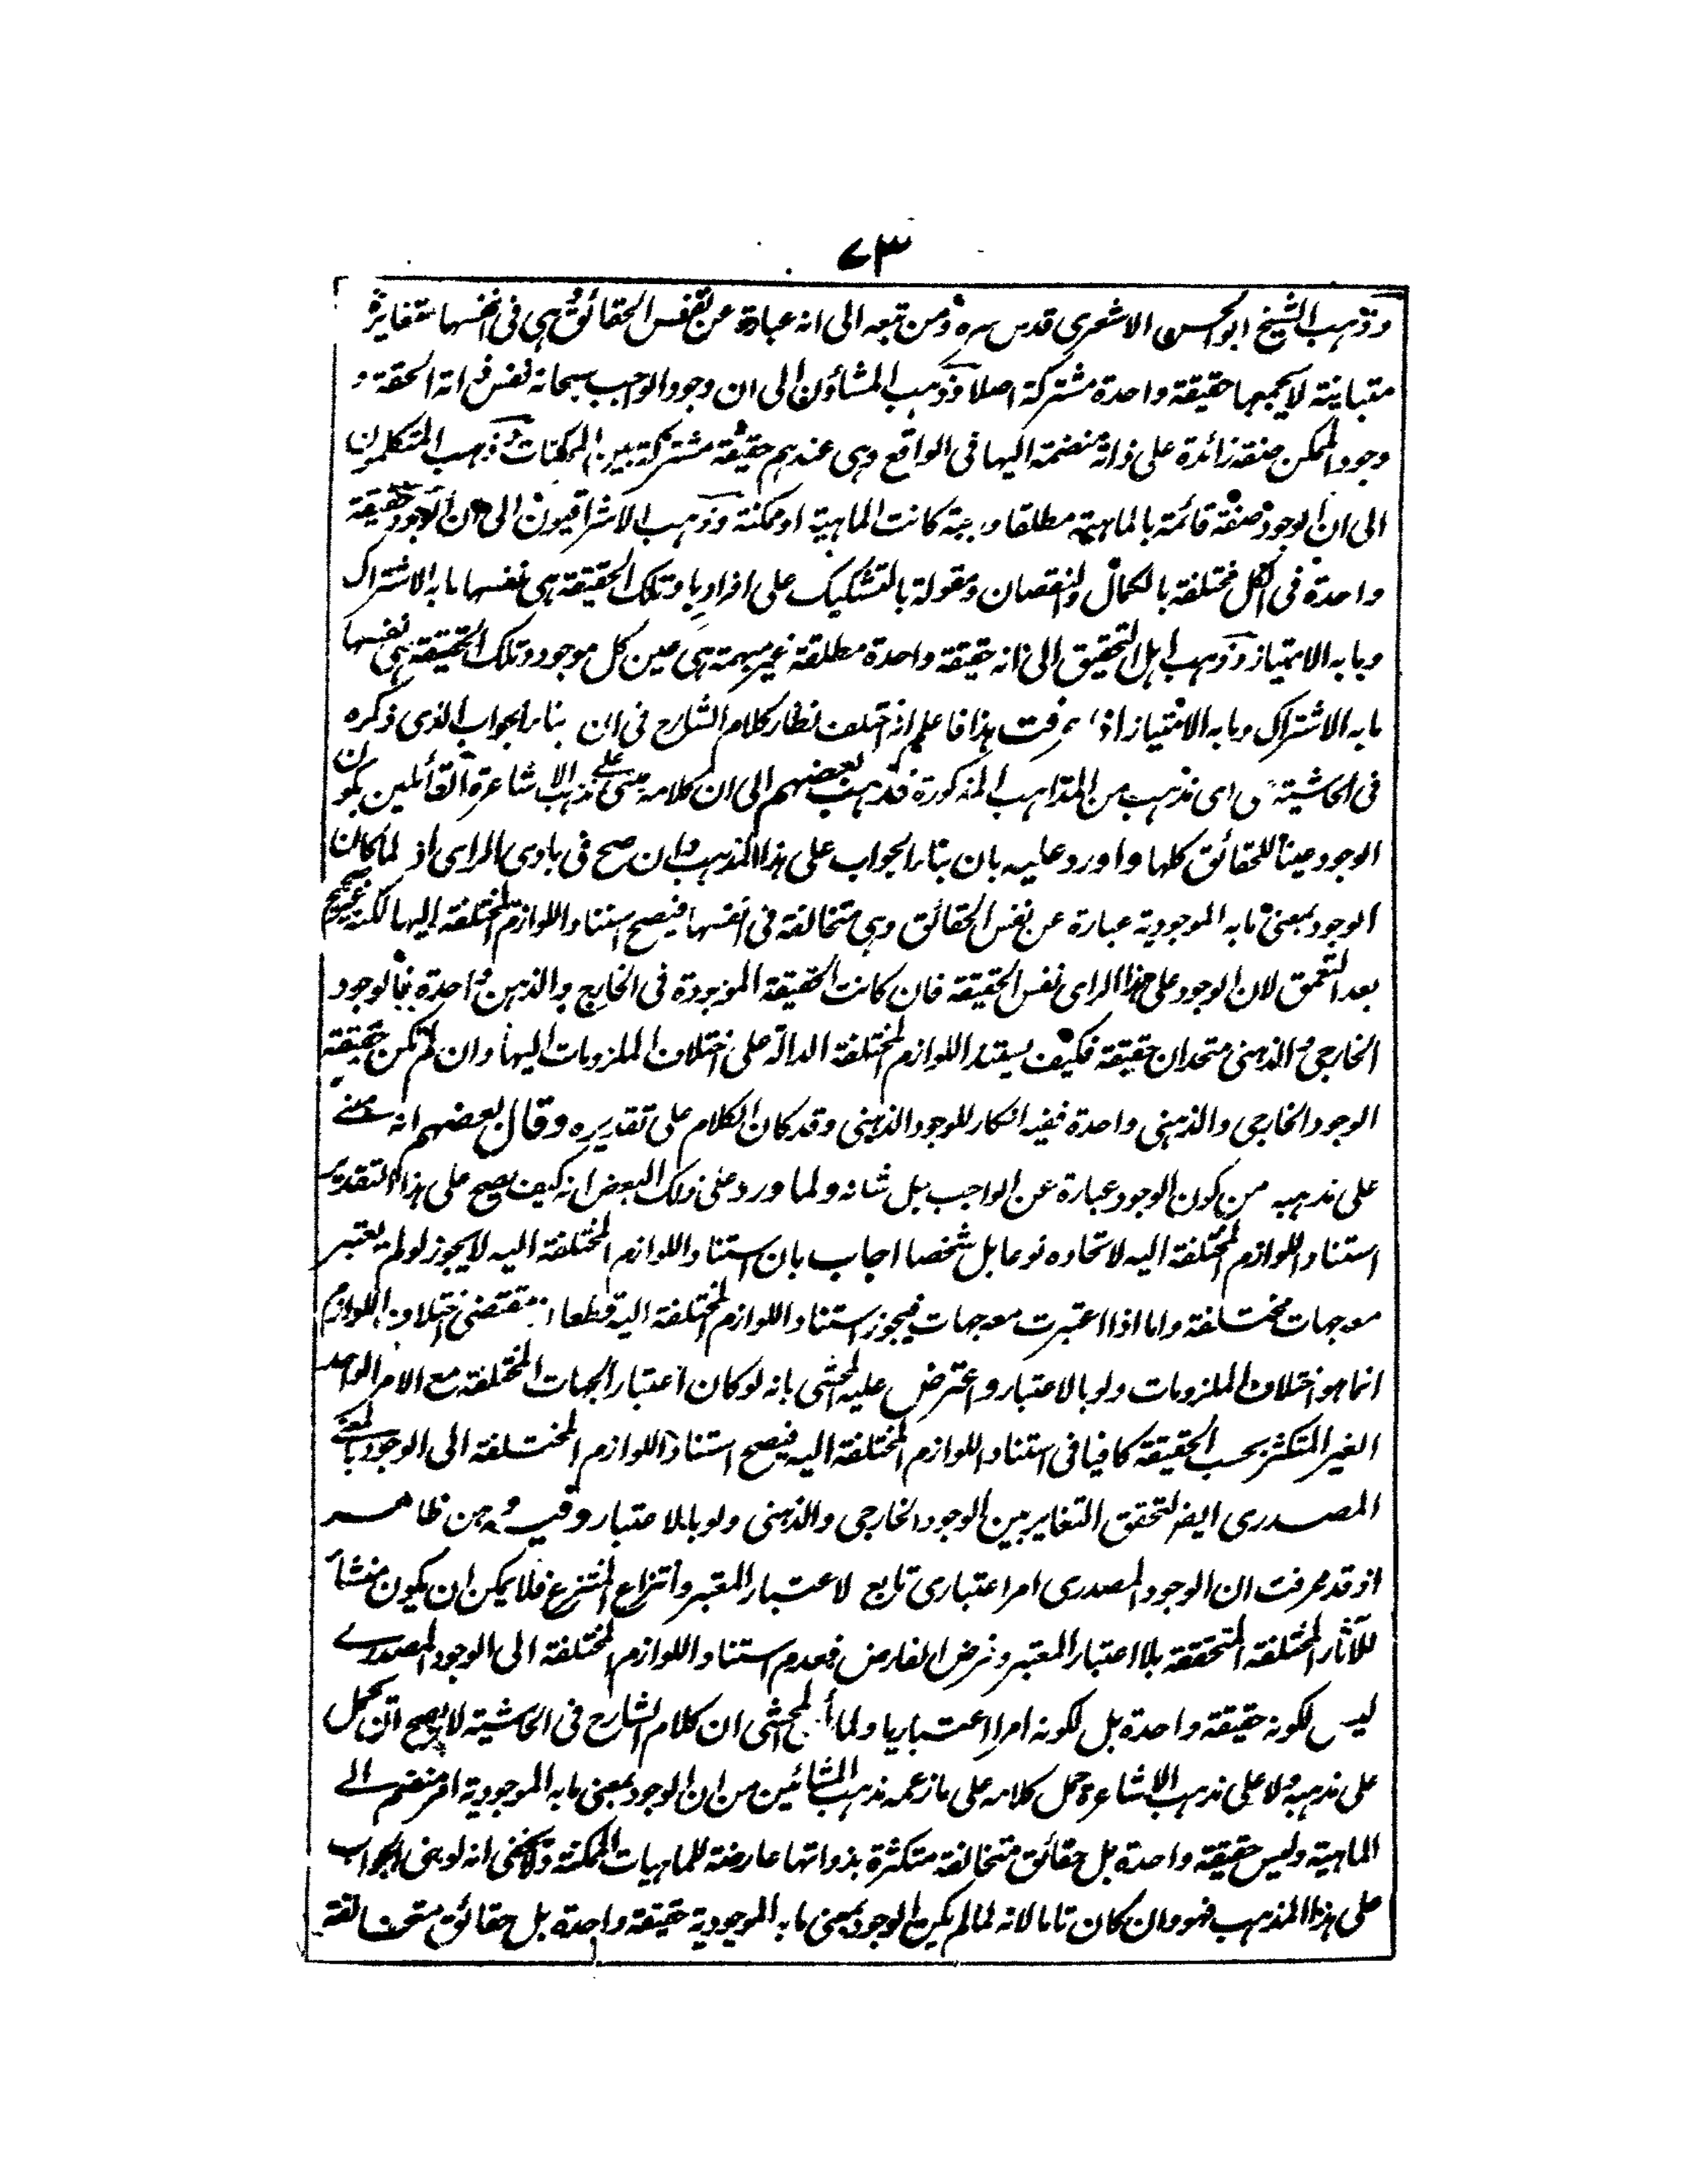 ٧٣
وذهب الشيخ ابو الحسن الاشعرى قدس سره ومن تبعه الى انه عبارة عن نفس الحقائق وهى فى انفسها متغايرة
متباينة لا يجمعها حقيقة واحدة مشتركة اصلا وذهب المشاؤن الى ان وجود الواجب سبحانه نفس ذاته الحقة و
وجود الممكن صفة زائدة على ذاته منضمة اليها فى الواقع وهى عندهم حقيقة مشتركة بين الممكنات وذهب المتكلمون
الى ان الوجود صفة قائمة بالماهية مطلقا واجبة كانت الماهية او ممكنة وذهب الاشراقيون الى ان الوجود حقيقة
واحدة فى الكل مختلفة بالكمال والنقصان ومقولة بالتشكيك على افرادها وتلك الحقيقة هى نفسها ما به الاشتراك
وما به الامتياز وذهب اهل التحقيق الى انه حقيقة واحدة مطلقة غير مبهمة هى عين كل موجود وتلك الحقيقة هى نفسها
ما به الاشتراك وما به الامتياز اذا عرفت هذا فاعلم انه اختلف نظار كلام الشارح فى ان بناء الجواب الذى ذكره
فى الحاشية على اى مذهب من المذاهب المذكورة فذهب بعضهم الى ان كلامه مبنى على مذهب الاشاعرة القائلين بكون
الوجود عينا للحقائق كلها واورد عليه بان بناء الجواب على هذا المذهب وان صح فى بادى الراى اذ لما كان
الوجود بمعنى ما به الموجودية عبارة عن نفس الحقائق وهى متخالفة فى انفسها فيصح استناد اللوازم المختلفة اليها لكنه غير صحيح
بعد التعمق لان الوجود على هذا الراى نفس الحقيقة فان كانت الحقيقة الموجودة فى الخارج والذهن واحدة فالوجود
الخارجى والذهنى متحدان حقيقة فكيف يستند اللوازم المختلفة الدالة على اختلاف الملزومات اليها وان لم تكن حقيقة
الوجود الخارجى والذهنى واحدة ففيه انكار للوجود الذهنى وقد كان الكلام على تقديره وقال بعضهم انه مبنى
على مذهبه من كون الوجود عبارة عن الواجب جل شانه ولما ورد على ذلك البعض انه كيف يصح على هذا التقدير
استناد اللوازم المختلفة اليه لاتحاده نوعا بل شخصا اجاب بان استناد اللوازم المختلفة اليه لا يجوز لو لم يعتبر
معه جهات مختلفة واما اذا اعتبرت معه جهات فيجوز استناد اللوازم المختلفة اليه قطعا اذ مقتضى اختلاف اللوازم
انما هو اختلاف الملزومات ولو بالاعتبار واعترض عليه المحشى بانه لو كان اعتبار الجهات المختلفة مع الامر الواحد
الغير المتكثر بحسب الحقيقة كافيا فى استناد اللوازم المختلفة اليه فيصح استناد اللوازم المختلفة الى الوجود بالمعنى
المصدرى ايضا لتحقق التغاير بين الوجود الخارجى والذهنى ولو بالاعتبار وفيه وهن ظاهر
اذ قد عرفت ان الوجود المصدرى امر اعتبارى تابع لاعتبار المعتبر وانتزاع المنتزع فلا يمكن ان يكون منشأ
للآثار المختلفة المتحققة بلا اعتبار المعتبر وفرض الفارض فعدم استناد اللوازم المختلفة الى الوجود المصدرى
ليس لكونه حقيقة واحدة بل لكونه امرا اعتباريا ولما المحشى ان كلام الشارح فى الحاشية لا يصح ان يحمل
على مذهبه ولا على مذهب الاشاعرة حمل كلامه على ما زعمه مذهب المشائين من ان الوجود بمعنى ما به الموجودية امر منضم الى
الماهية وليس حقيقة واحدة بل حقائق متخالفة متكثرة بذواتها عارضة للماهيات الممكنة ولا يخفى انه لو بنى الجواب
على هذا المذهب فهو وان كان تاما لانه لما لم يكن الوجود بمعنى ما به الموجودية حقيقة واحدة بل حقائق متخالفة